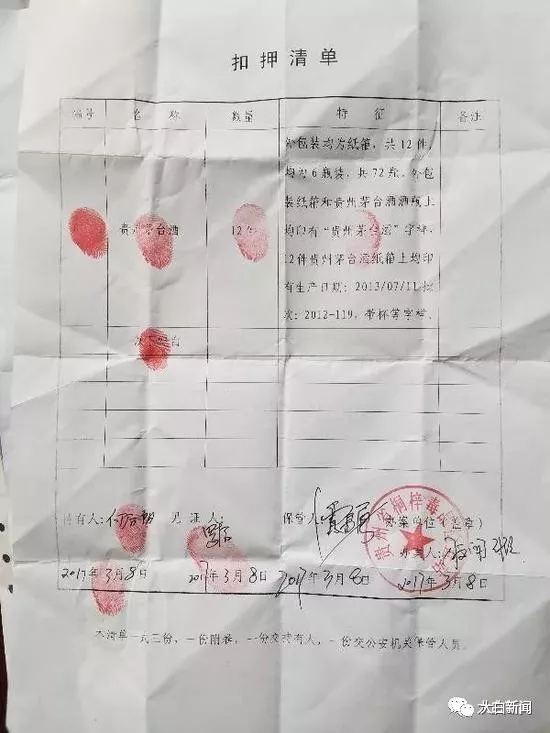 扣押清单
编号 名称 数量 特征 备注
贵州茅台酒 12件
外包装均为纸箱，共12件，
均为6瓶装，共72瓶。外包
装纸箱和贵州茅台酒酒瓶上
均印有“贵州茅台酒”字样，
12件贵州茅台酒纸箱上均印
有生产日期：2013/07/11 批
次：2012-119，带杯等字样。
持有人： 见证人： 保管人： 办案单位（盖章）
办案人：
2017年3月8日 2017年3月8日 2017年3月8日 2017年3月8日
本清单一式三份，一份附卷，一份交持有人，一份交公安机关保管人员。
大白新闻